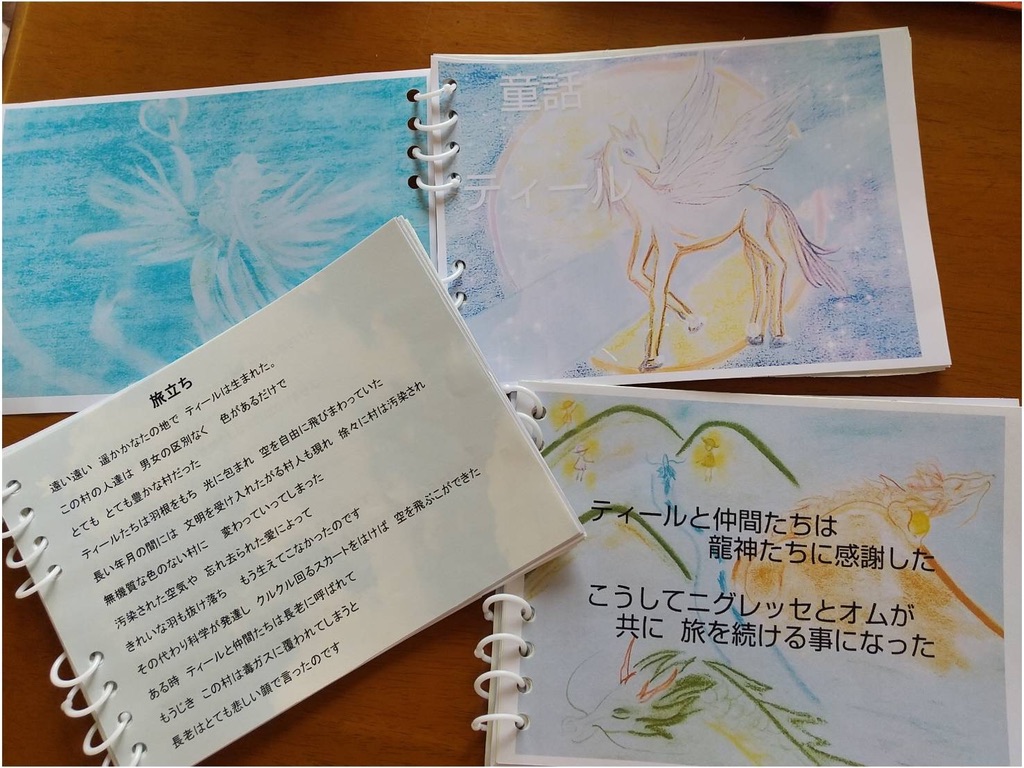 童話
ティール
旅立ち
遠い遠い　遥かかなたの地で　ティールは生まれた。
この村の人達は　男女の区別なく　色があるだけで
とても　とても豊かな村だった
ティールたちは羽根をもち　光に包まれ　空を自由に飛びまわっていた
長い年月の間には　文明を受け入れたがる村人も現れ　徐々に村は汚染され
無機質な色のない村に　変わっていってしまった
汚染された空気や　忘れ去られた愛によって
きれいな羽も抜け落ち　もう生えてこなかったのです
その代わり科学が発達し　クルクル回るスカートをはけば　空を飛ぶこができた
ある時　ティールと仲間たちは長老に呼ばれて
もうじき　この村は毒ガスに覆われてしまうと
長老はとても悲しい顔で言ったのです
ティールと仲間たちは
龍神たちに感謝した
こうしてニグレッセとオムが
共に　旅を続ける事になった